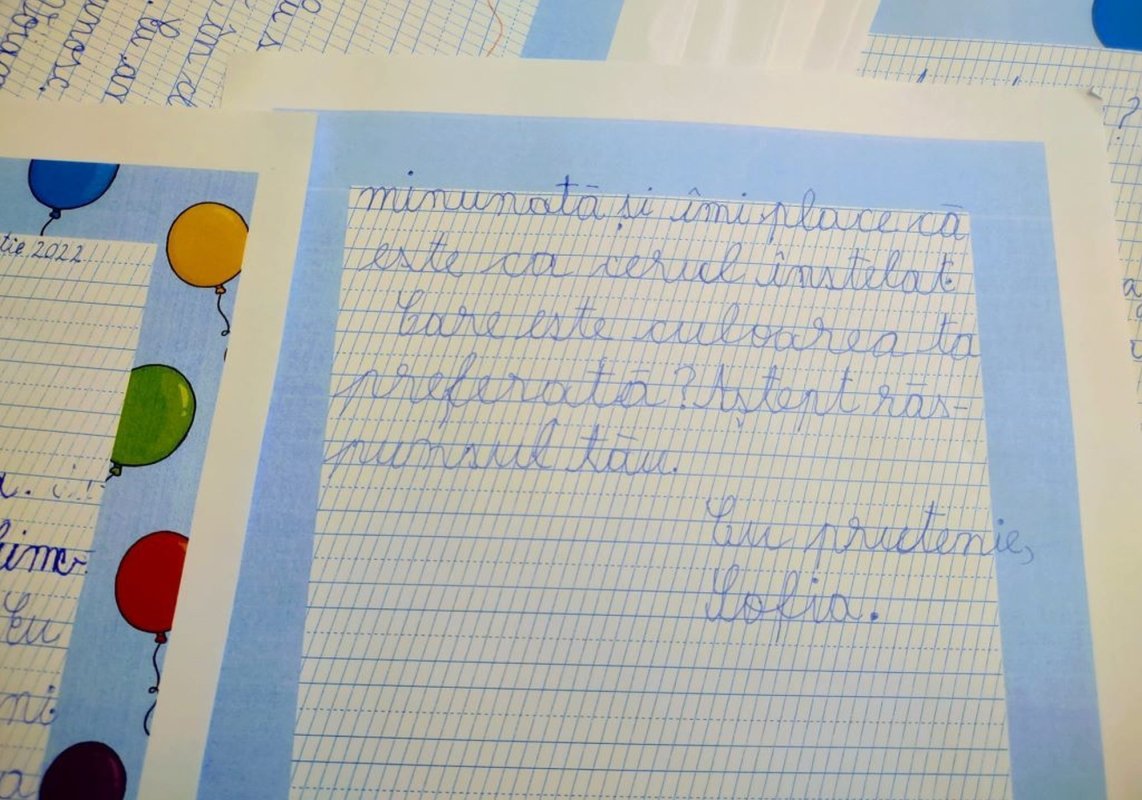 minunată și îmi place că
este ca cerul înstelat.
Care este culoarea ta
preferată? Aștept răs-
punsul tău.
Cu prietenie,
Sofia.
tie 2022